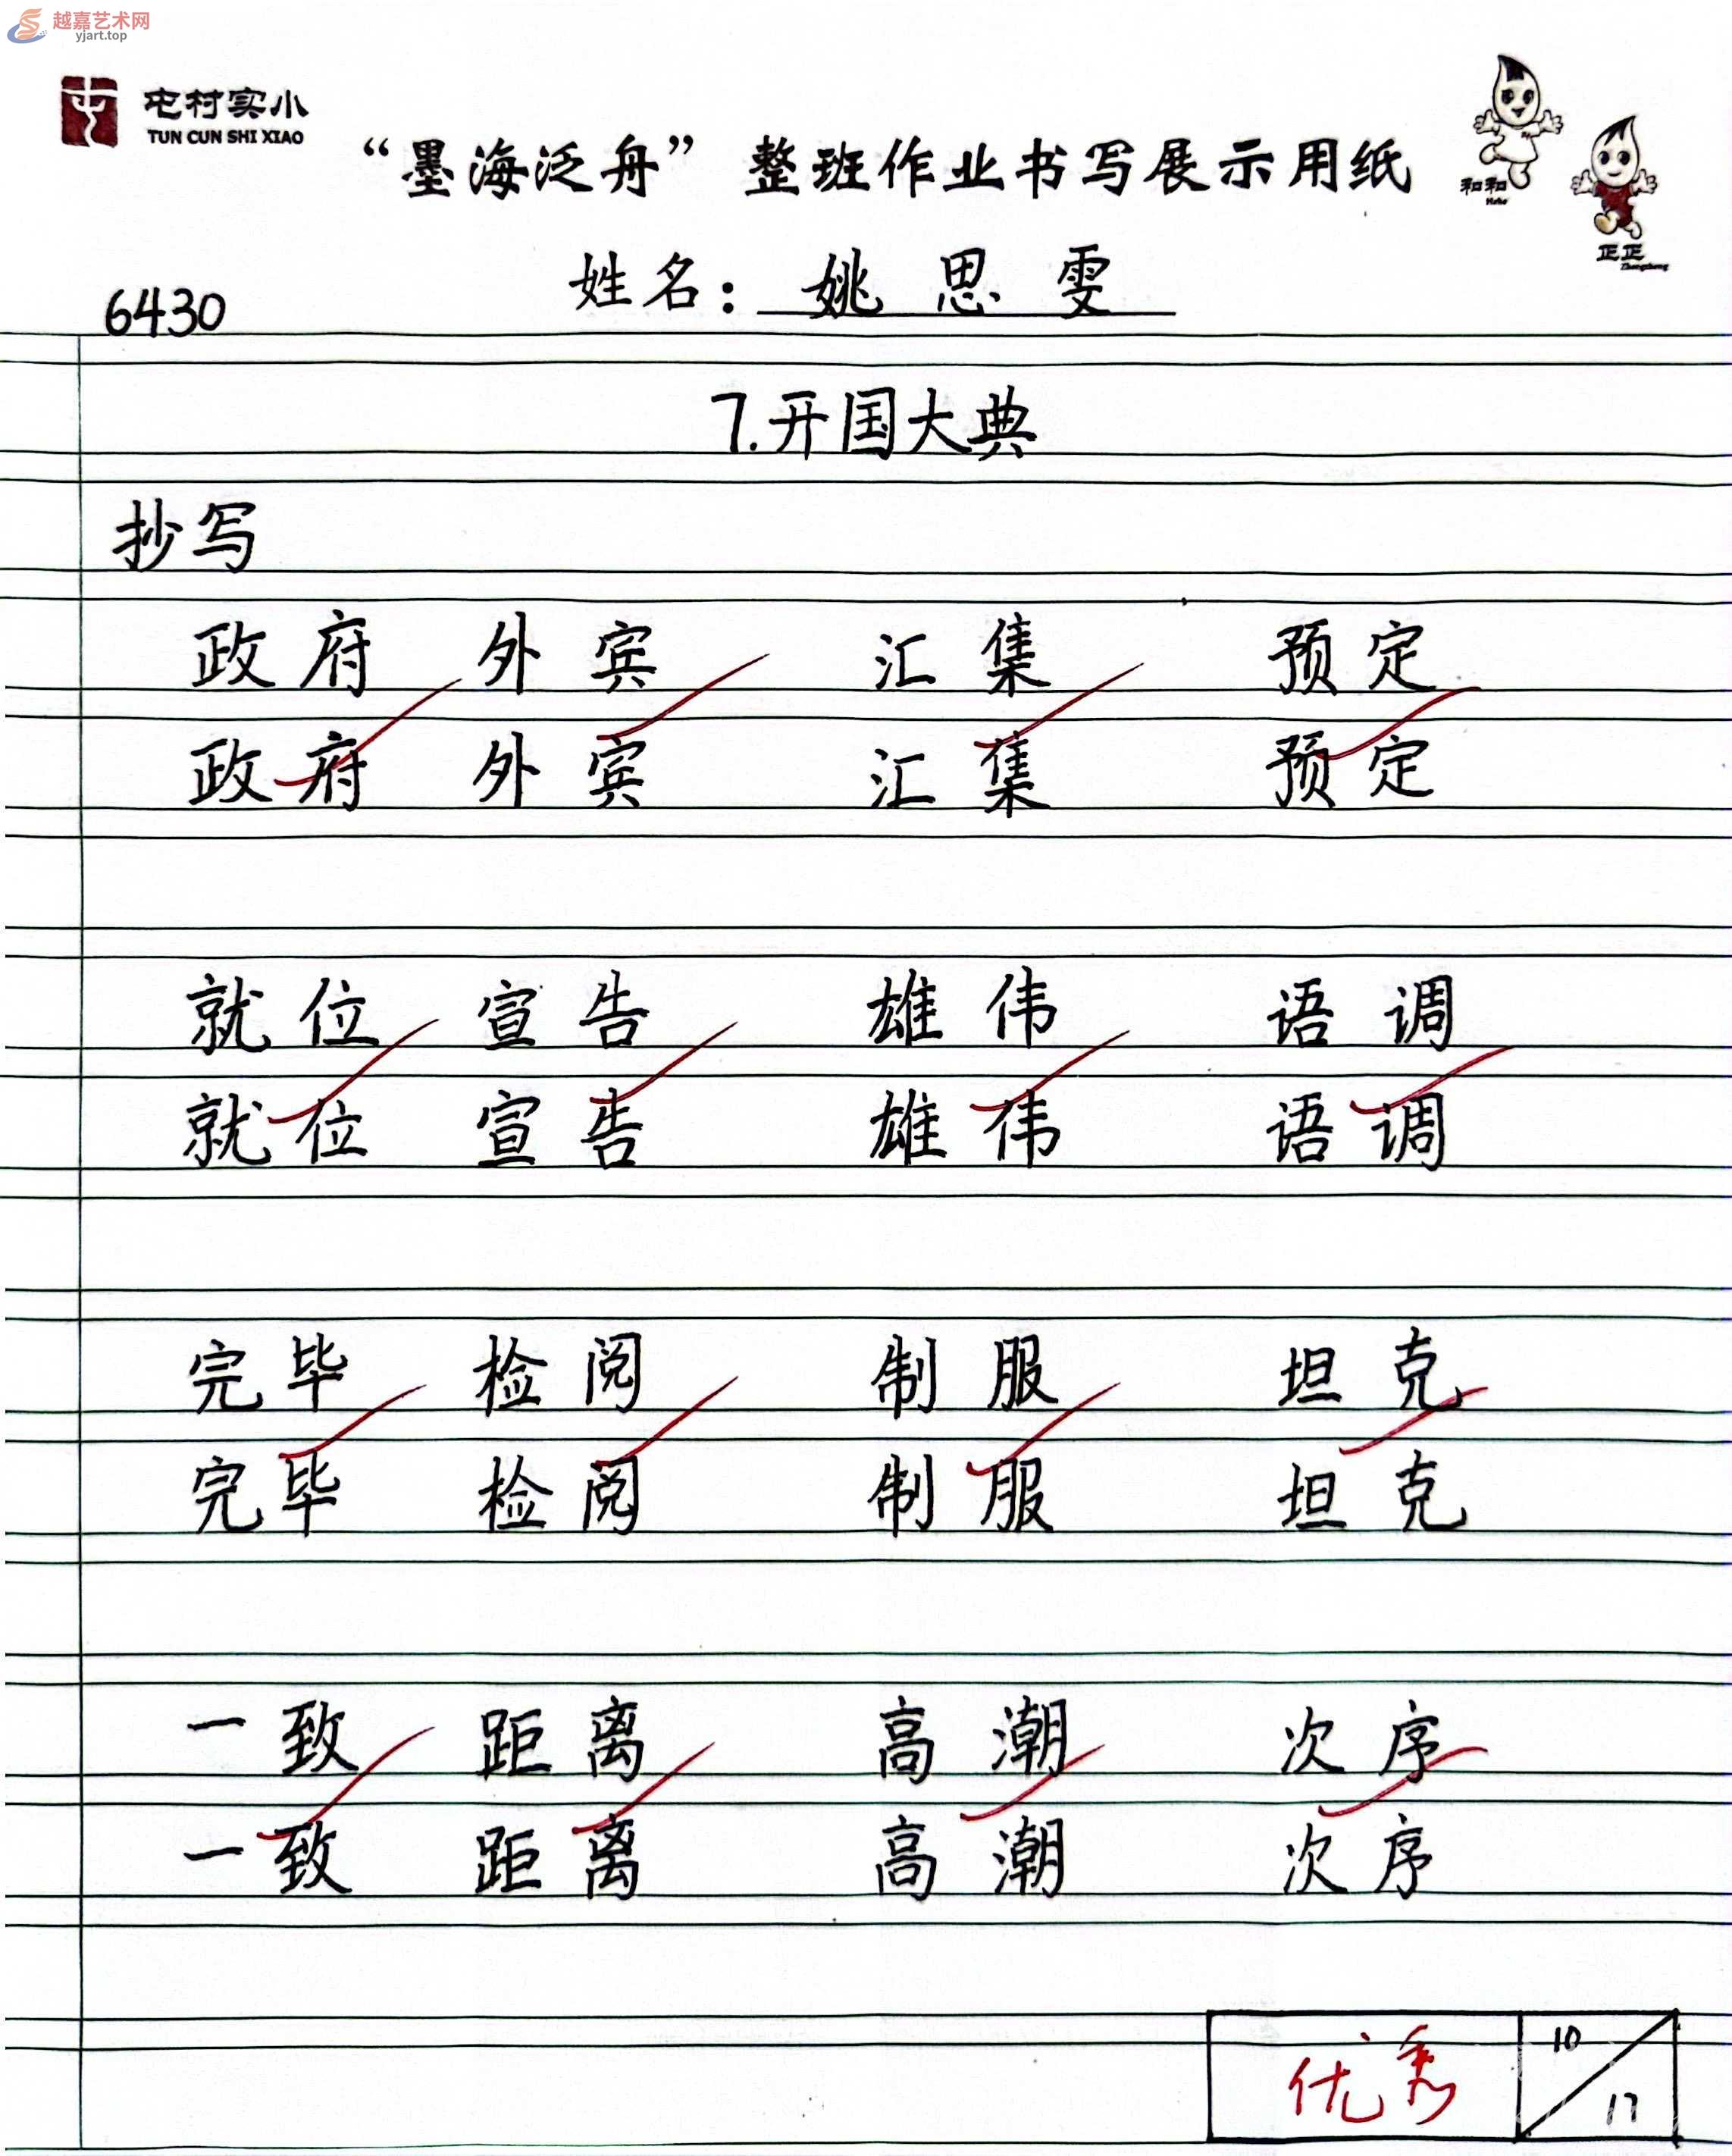 越嘉艺术网
yjart.top
屯村实小
TUN CUN SHI XIAO
“墨海泛舟” 整班作业书写展示用纸
和和
Hehe
正正
Zhengzheng
6430
姓名：姚思雯
7.开国大典
抄写
政府 外宾 汇集 预定
政府 外宾 汇集 预定
就位 宣告 雄伟 语调
就位 宣告 雄伟 语调
完毕 检阅 制服 坦克
完毕 检阅 制服 坦克
一致 距离 高潮 次序
一致 距离 高潮 次序
优秀 10/17